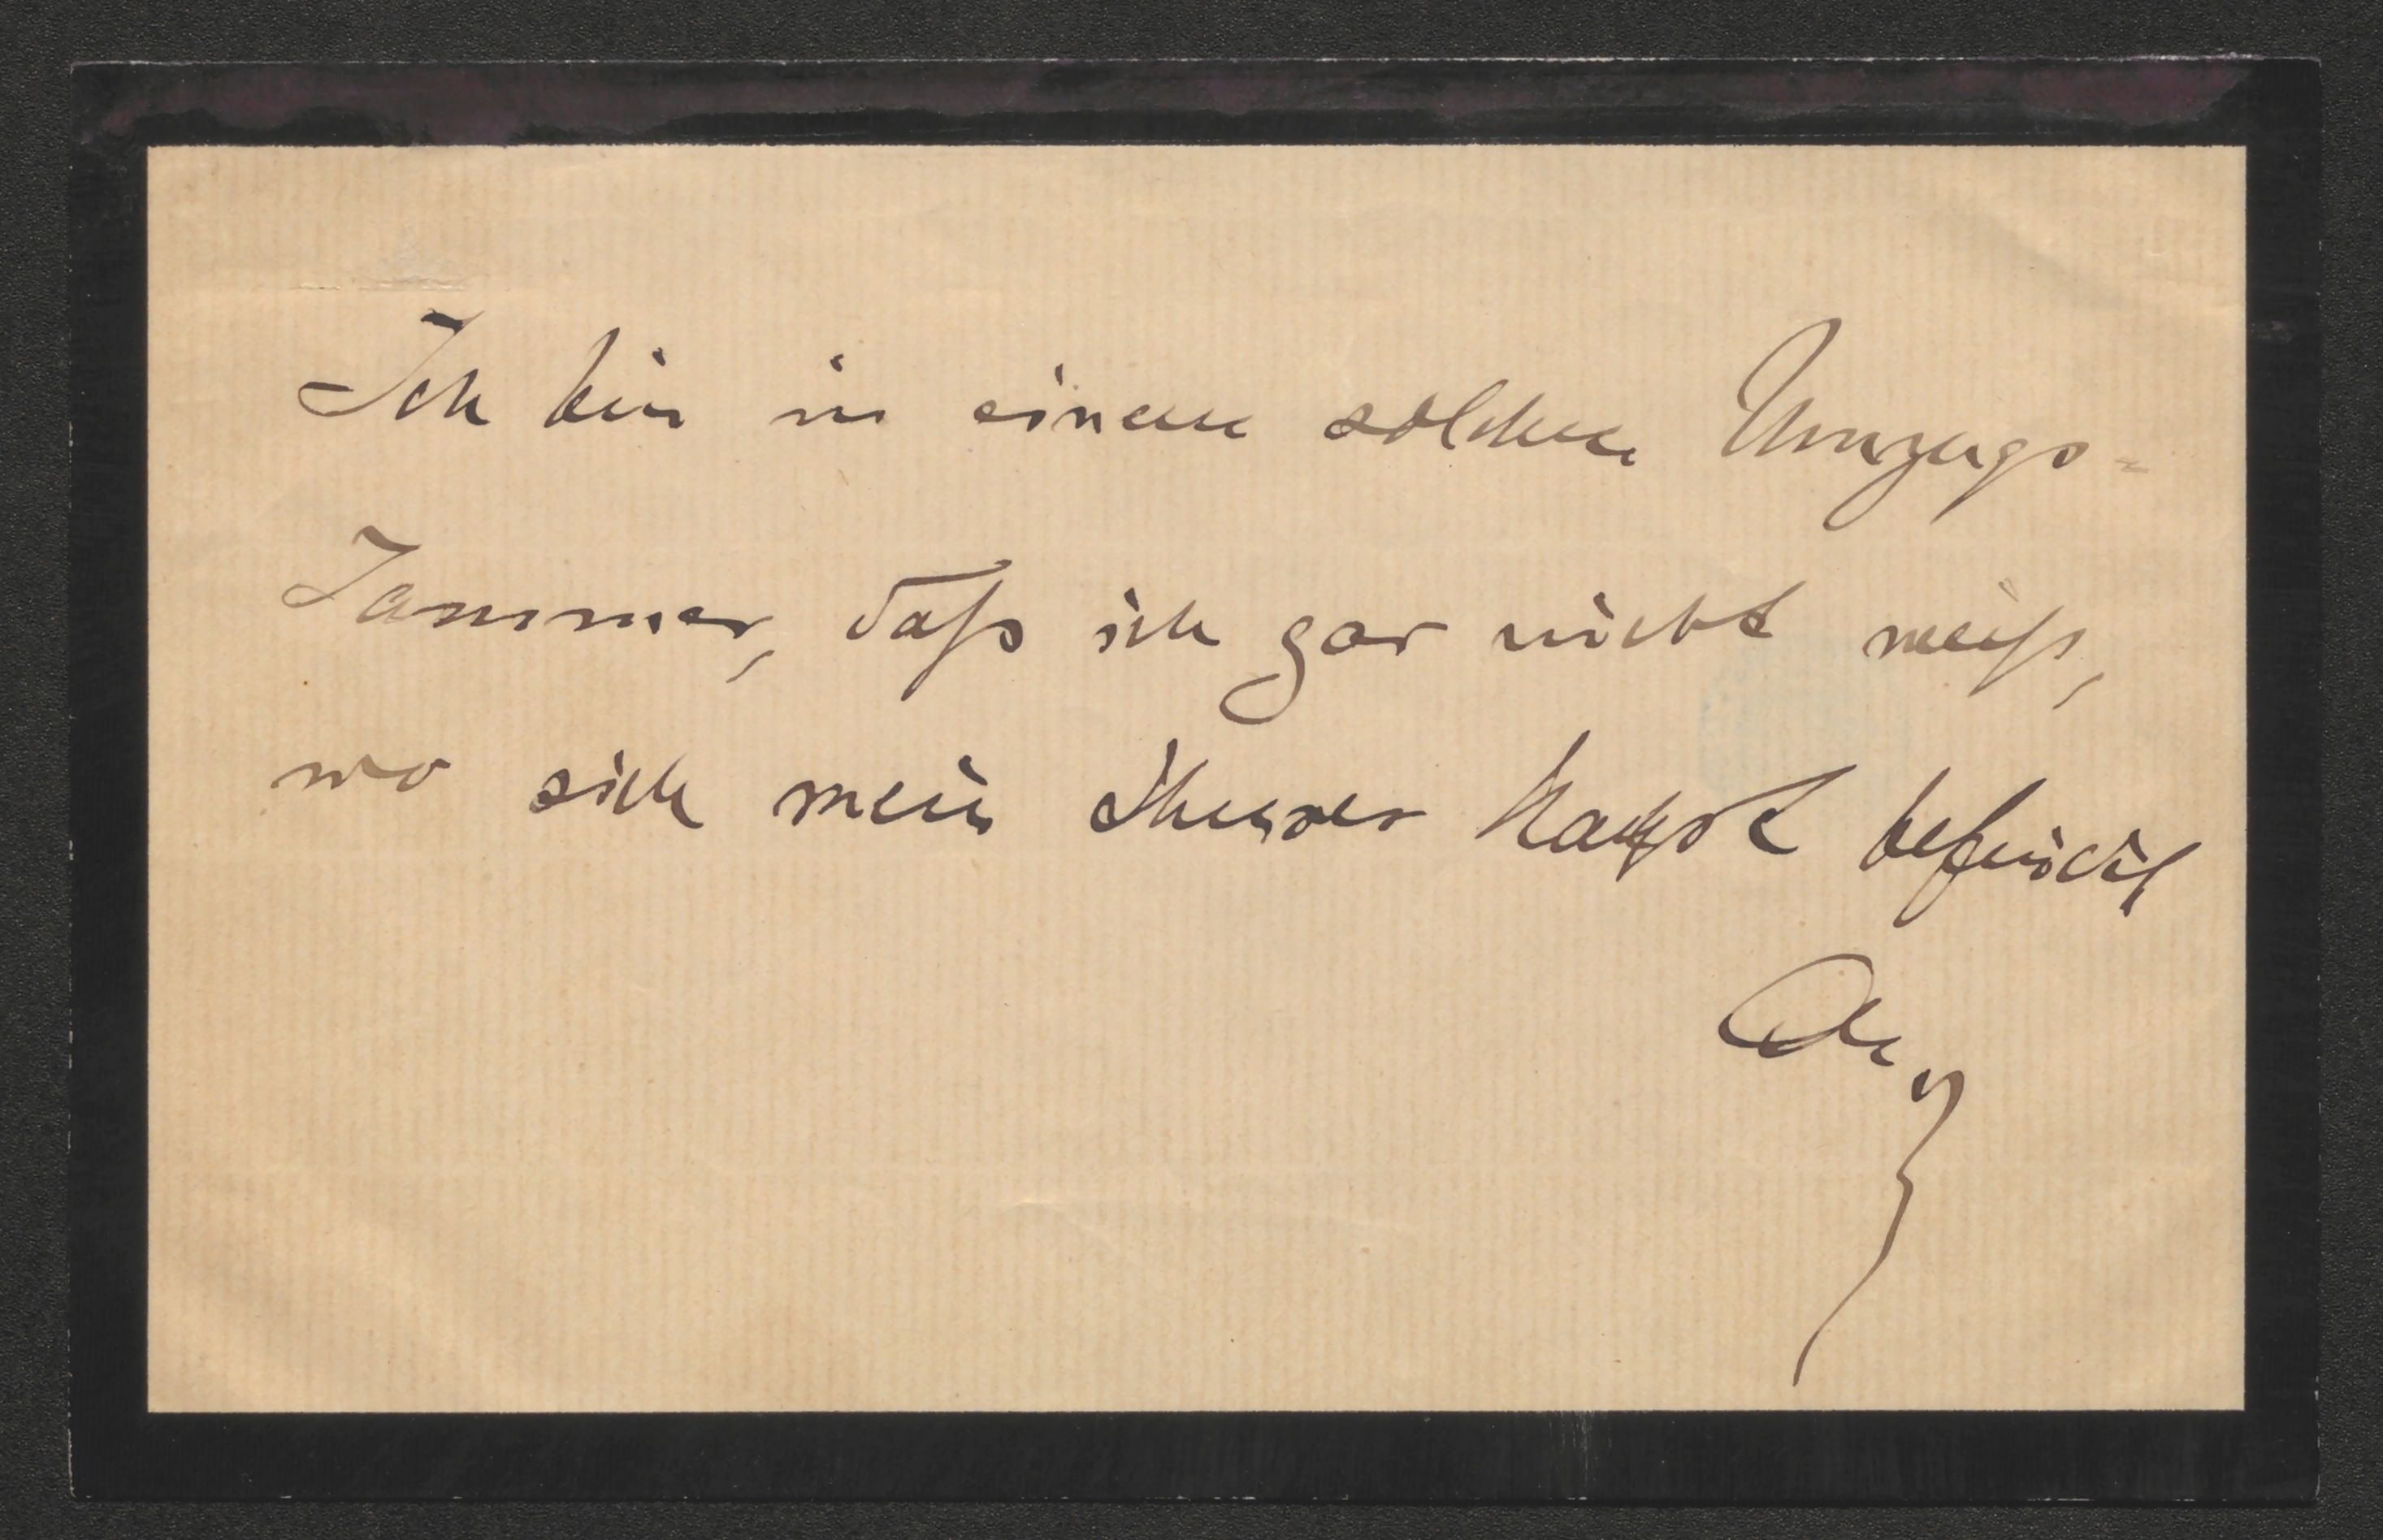 Ich bin in einem solchen Umzugs=
Jammer, daß ich gar nicht weiß,
wo sich mein theures Haupt befindet